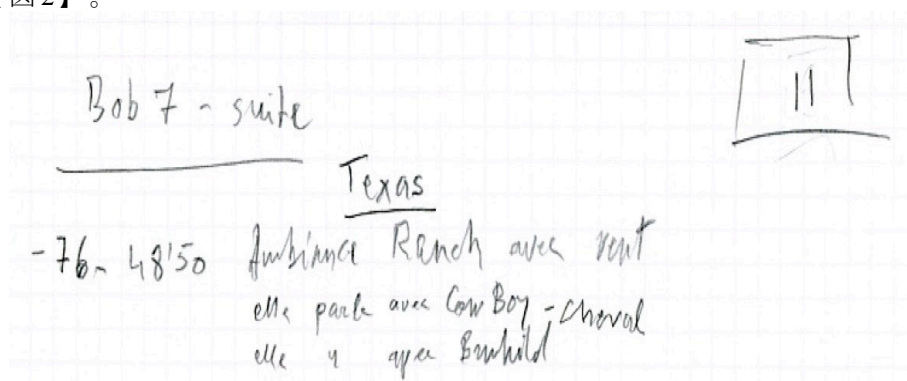 图2】。
Bob 7 - suite
11
Texas
-76- 48'50 Ambiance Ranch avec vent
elle parle avec Cow Boy - cheval
elle y Brunhild